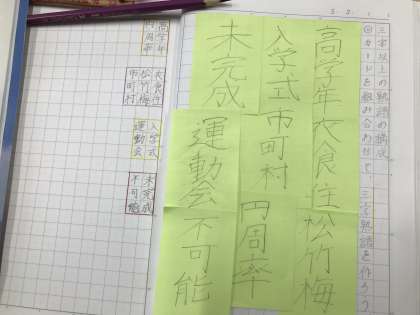 三字以上の熟語の構成
◎カードを組み合わせて、三字熟語を作ろう
高学年衣食住松竹梅
入学式市町村円周率
未完成運動会不可能
高学年
円周率
衣食住
松竹梅
市町村
入学式
運動会
未完成
不可能